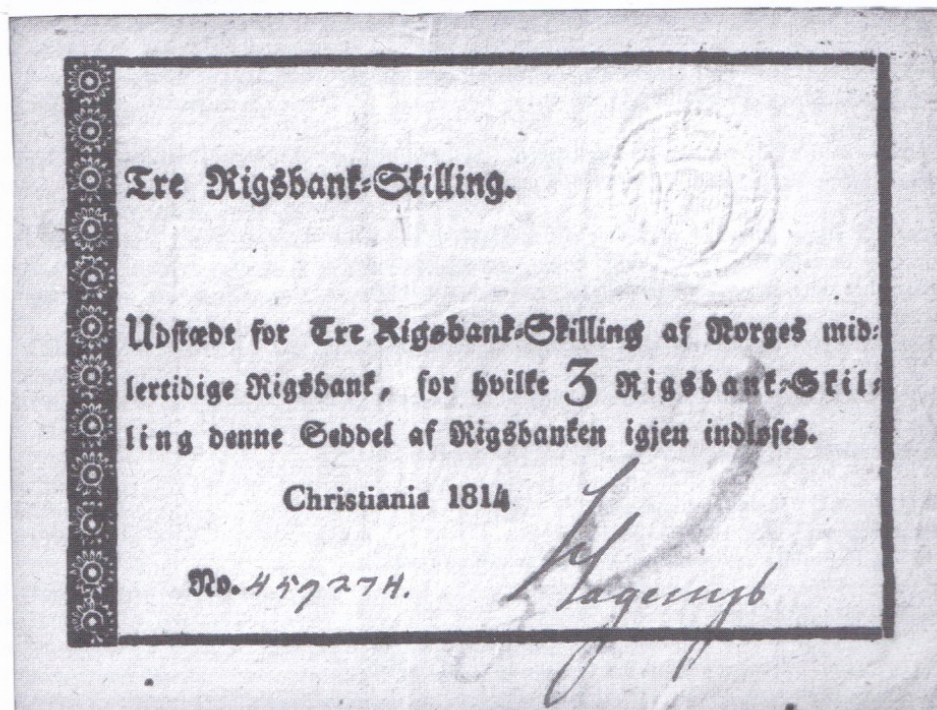 Tre Rigsbank-Skilling.
Udstædt for Tre Rigsbank-Skilling af Norges mid-
lertidige Rigsbank, for hvilke 3 Rigsbank-Skil-
ling denne Seddel af Rigsbanken igjen indløses.
Christiania 1814
No. 459274.